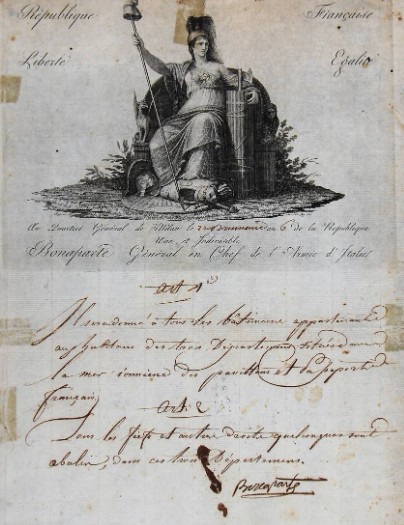 République Française
Liberté Egalité
Au Quartier Général de Milan le brumaire an 6 de la République
Une et Indivisible
Bonaparte Général en Chef de l'Armée d'Italie
art 1er
Il sera donné à tous les bâtimens appartenant
aux habitans des trois Départemens
la mer Ionienne des pavillons et des passeports
français
art. 2
Tous les fiefs et autre droits quelconques sont
abolis, dans ces trois Départemens.
Bonaparte